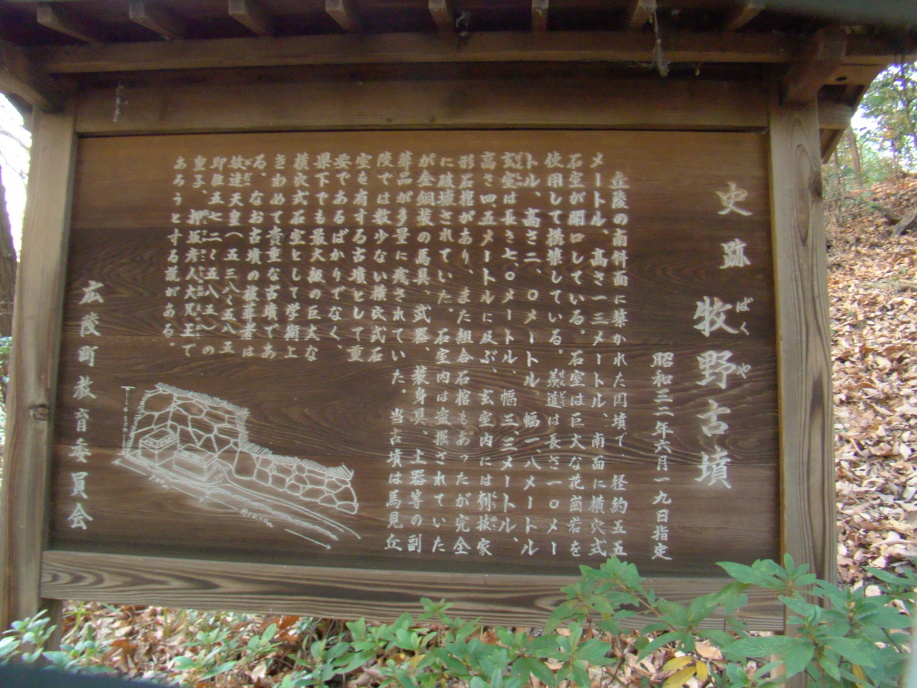 史跡 牧野古墳
ばくや
昭和三二年六月一九日指定
丘陵の南斜面に築かれた円墳で、経約五五
メートル、高さ一三メートル、南面に横穴式
石室が開口している。石室は巨大な花崗岩を
使用して構築している。羨道は長さ一〇メー
トル、高さ二.〇メートル、幅一.八メートル
玄室は長さ七.〇メートル、幅三.三メートル、
高さ四.五メートルに及ぶ。玄室内には刳抜家
形石棺があり、また組合石棺もあったが完全
に破壊され 石室内は盗掘されていた
が金銅装の馬具、武器、装身具、土器等の副
葬品が多量に残されていた。当古墳は馬見丘
陵では数少ない横穴式石
室を有する古墳として重
要であるばかりでなく
県下でも最大級の巨大な
横穴式石室墳として学術上
きわめて貴重な
る。なお
天皇
皇
あろうとする がある。
広陵町教育委員会